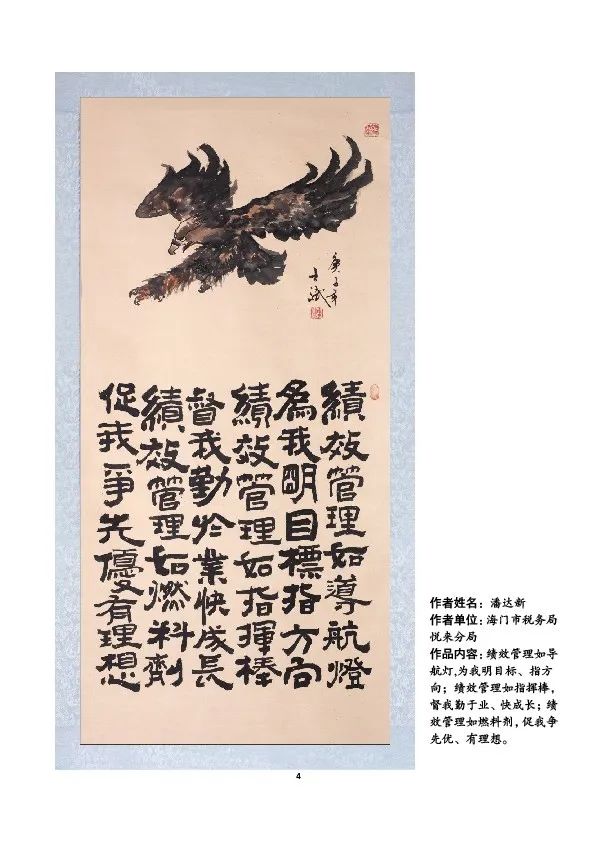 庚子年
績效管理如導航燈
為我明目標指方向
績效管理如指揮棒
督我勤於業快成長
績效管理如燃料劑
促我爭先優有理想
作者姓名：潘达新
作者单位：海门市税务局
悦来分局
作品内容：绩效管理如导
航灯,为我明目标、指方
向；绩效管理如指挥棒，
督我勤于业、快成长；绩
效管理如燃料剂，促我争
先优、有理想。
4